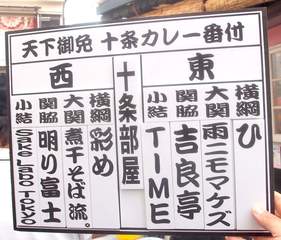 天下御免 十条カレー番付
東
横綱 ひ
大関 雨ニモマケズ
関脇 吉良亭
小結 TIME
十条部屋
西
横綱 彩め
大関 煮干そば 流。
関脇 明り富士
小結 Sake Labo TOKYO